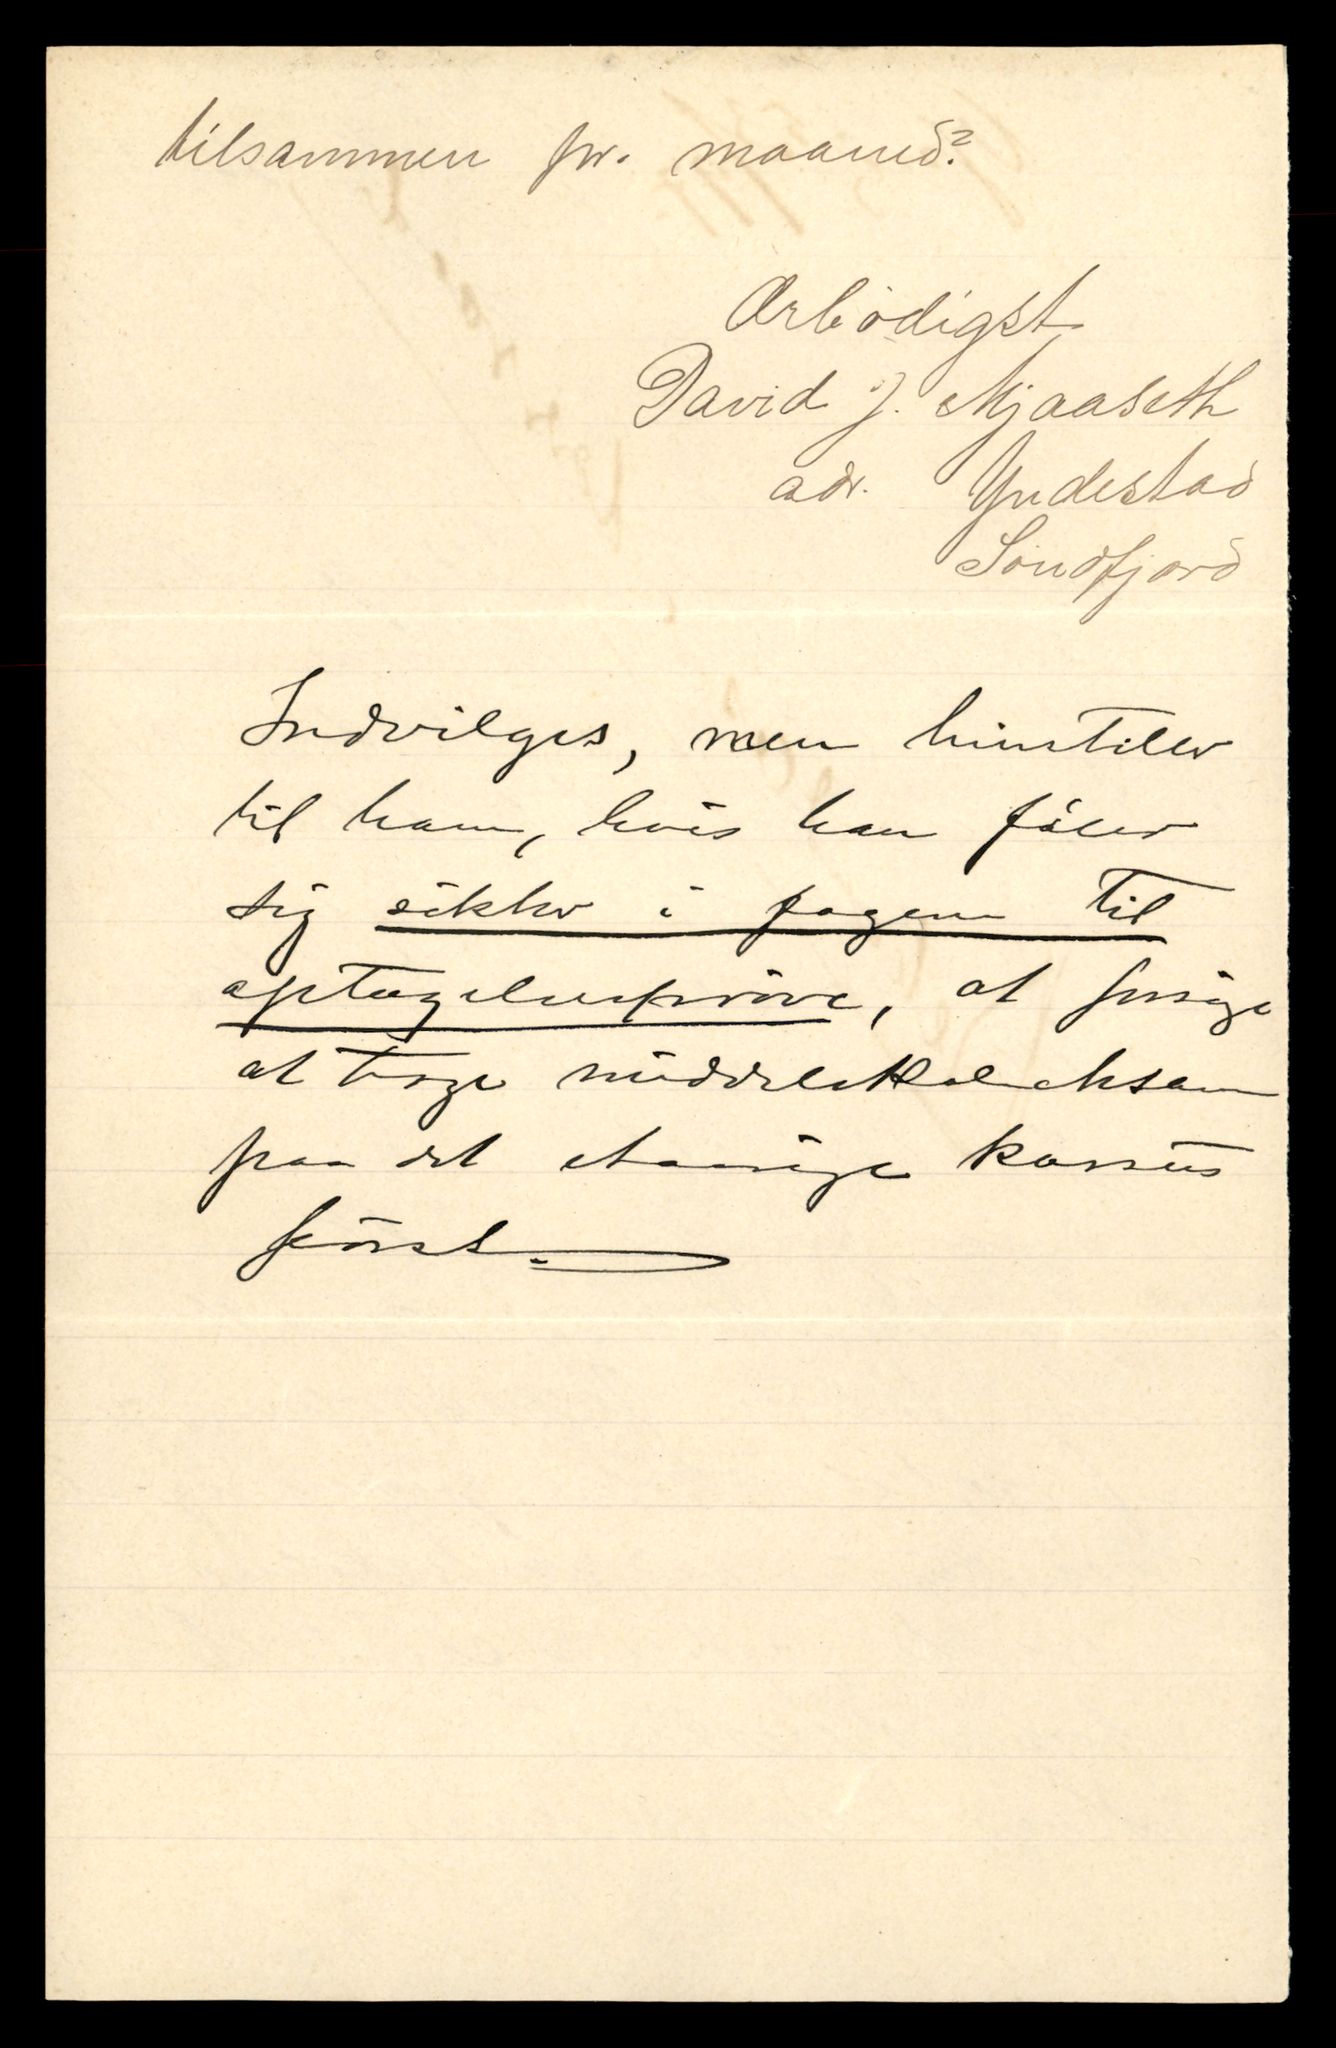 tilsammen pr. maaned?
Ærbödigst
David J. Mjaaseth
adr. Yndestad
Söndfjord
Indvilges, men hinstiller
til ham, hvis han föler
sig sikker i fagene til
optagelsespröve, at forsöge
at tage middelskoleeksam
paa det etaarige kursus
först.